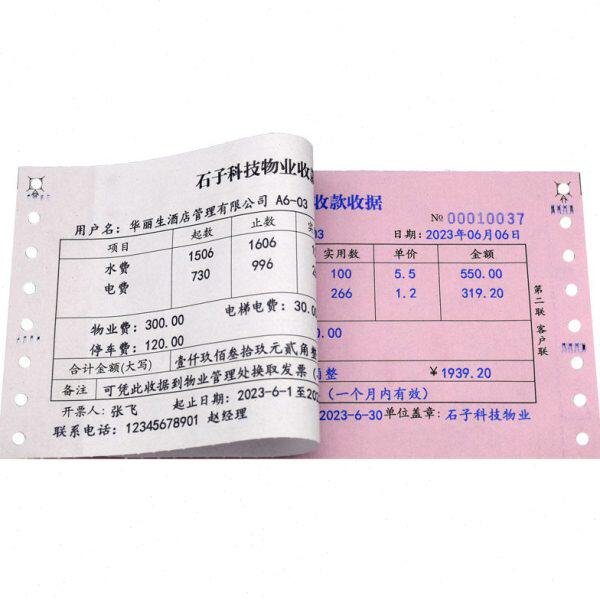 石子科技物业收
收款收据
№ 00010037
用户名：华丽生酒店管理有限公司 A6-03
03 日期：2023年06月06日
项目 起数 止数
实用数 单价 金额
水费 1506 1606
100 5.5 550.00
电费 730 996
266 1.2 319.20
物业费：300.00 电梯电费：30.0
0.00
停车费：120.00
合计金额(大写) 壹仟玖佰叁拾玖元贰角整
整 ¥1939.20
备注 可凭此收据到物业管理处换取发票
（一个月内有效）
开票人：张飞 起止日期：2023-6-1 至20
2023-6-30 单位盖章：石子科技物业
联系电话：12345678901 赵经理
第二联 客户联